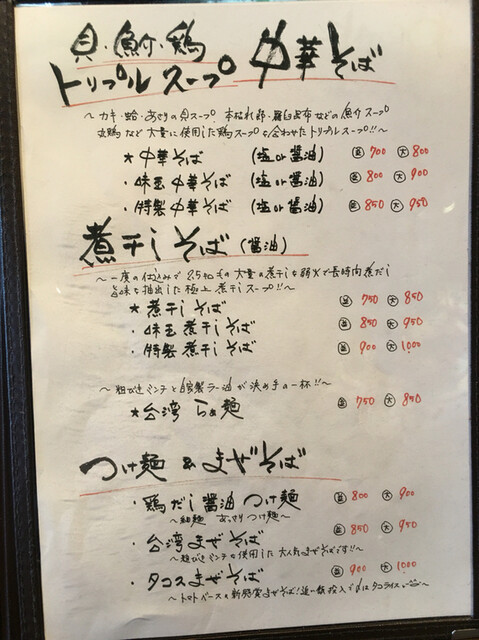 貝・魚介・鶏
トリプルスープ 中華そば
〜カキ・蛤・あさりの貝スープ、本枯れ節・羅臼昆布などの魚介スープ
丸鶏など大量に使用した鶏スープを合わせたトリプルスープ!!〜
★中華そば (塩or醤油) 並 700 大 800
・味玉中華そば (塩or醤油) 並 800 大 900
・特製中華そば (塩or醤油) 並 850 大 950
煮干しそば (醤油)
〜一度の仕込みで25キロもの大量の煮干しを弱火で長時間煮だし
旨味を抽出した極上煮干しスープ!!〜
★煮干しそば 並 750 大 850
・味玉煮干しそば 並 850 大 950
・特製煮干しそば 並 900 大 1000
〜粗びきミンチと自家製ラー油が決め手の一杯!!〜
★台湾らぁ麺 並 750 大 850
つけ麺 & まぜそば
・鶏だし醤油つけ麺 並 800 大 900
〜細麺 あっさりつけ麺〜
・台湾まぜそば 並 850 大 950
〜粗びきミンチを使用した大人気まぜそばです!!〜
・タコスまぜそば 並 900 大 1000
〜トマトベースの新感覚まぜそば!追い飯投入で〆はタコライス